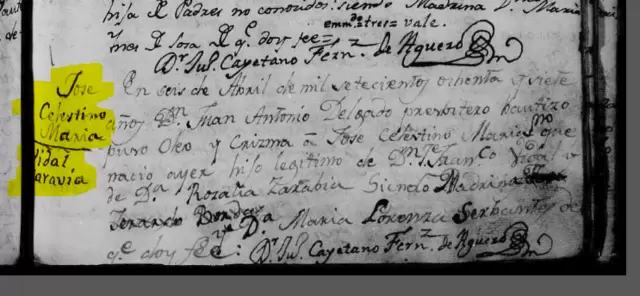 hija de Padres no conocidos: siendo Madrina Da. Maria
emmdo tres = vale.
Ynes de Sosa de qe. doy fee =
Dr. Jul. Cayetano Fernz. de Aguero
Jose
Celestino
Maria
Vidal
aravia
En seis de Abril de mil setecientos ochenta y siete
años Dn. Juan Antonio Delgado presbitero bautizo
puso Oleo y Crizma â Jose Celestino Maria que
nacio ayer hijo legitimo de Dn. Franco Vidal y
de Da. Rozalia Zarabia Siendo Madrina
Da. Maria Lorenza
qe. doy fee: Dr. Jul. Cayetano Fernz. de Aguero